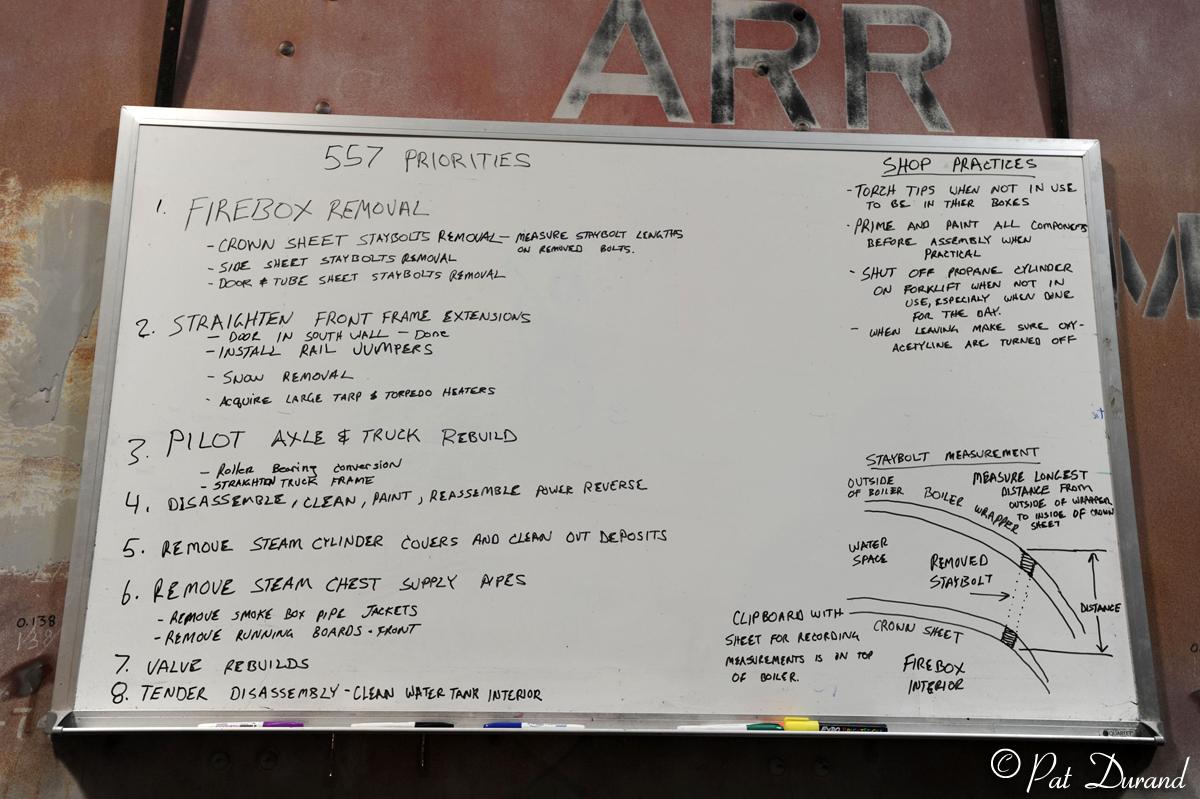 ARR
M
557 PRIORITIES
1. FIREBOX REMOVAL
- CROWN SHEET STAYBOLTS REMOVAL - MEASURE STAYBOLT LENGTHS
ON REMOVED BOLTS.
- SIDE SHEET STAYBOLTS REMOVAL
- DOOR & TUBE SHEET STAYBOLTS REMOVAL
2. STRAIGHTEN FRONT FRAME EXTENSIONS
- DOOR IN SOUTH WALL - Done
- INSTALL RAIL JUMPERS
- SNOW REMOVAL
- ACQUIRE LARGE TARP & TORPEDO HEATERS
3. PILOT AXLE & TRUCK REBUILD
- Roller Bearing conversion
- STRAIGHTEN TRUCK FRAME
4. DISASSEMBLE, CLEAN, PAINT, REASSEMBLE POWER REVERSE
5. REMOVE STEAM CYLINDER COVERS AND CLEAN OUT DEPOSITS
6. REMOVE STEAM CHEST SUPPLY PIPES
- REMOVE SMOKE BOX PIPE JACKETS
- REMOVE RUNNING BOARDS - FRONT
7. VALVE REBUILDS
8. TENDER DISASSEMBLY - CLEAN WATER TANK INTERIOR
SHOP PRACTICES
- TORCH TIPS WHEN NOT IN USE
TO BE IN THIER BOXES
- PRIME AND PAINT ALL COMPONENTS
BEFORE ASSEMBLY WHEN
PRACTICAL
- SHUT OFF PROPANE CYLINDER
ON FORKLIFT WHEN NOT IN
USE, ESPECIALY WHEN DONE
FOR THE DAY.
- WHEN LEAVING MAKE SURE OXY-
ACETYLINE ARE TURNED OFF
STAYBOLT MEASUREMENT
OUTSIDE
OF BOILER
BOILER WRAPPER
MEASURE LONGEST
DISTANCE FROM
OUTSIDE OF WRAPPER
TO INSIDE OF CROWN
SHEET
WATER
SPACE
REMOVED
STAYBOLT
DISTANCE
CROWN SHEET
FIREBOX
INTERIOR
CLIPBOARD WITH
SHEET FOR RECORDING
MEASUREMENTS IS ON TOP
OF BOILER.
0.138
QUARTET
EXPO
© Pat Durand